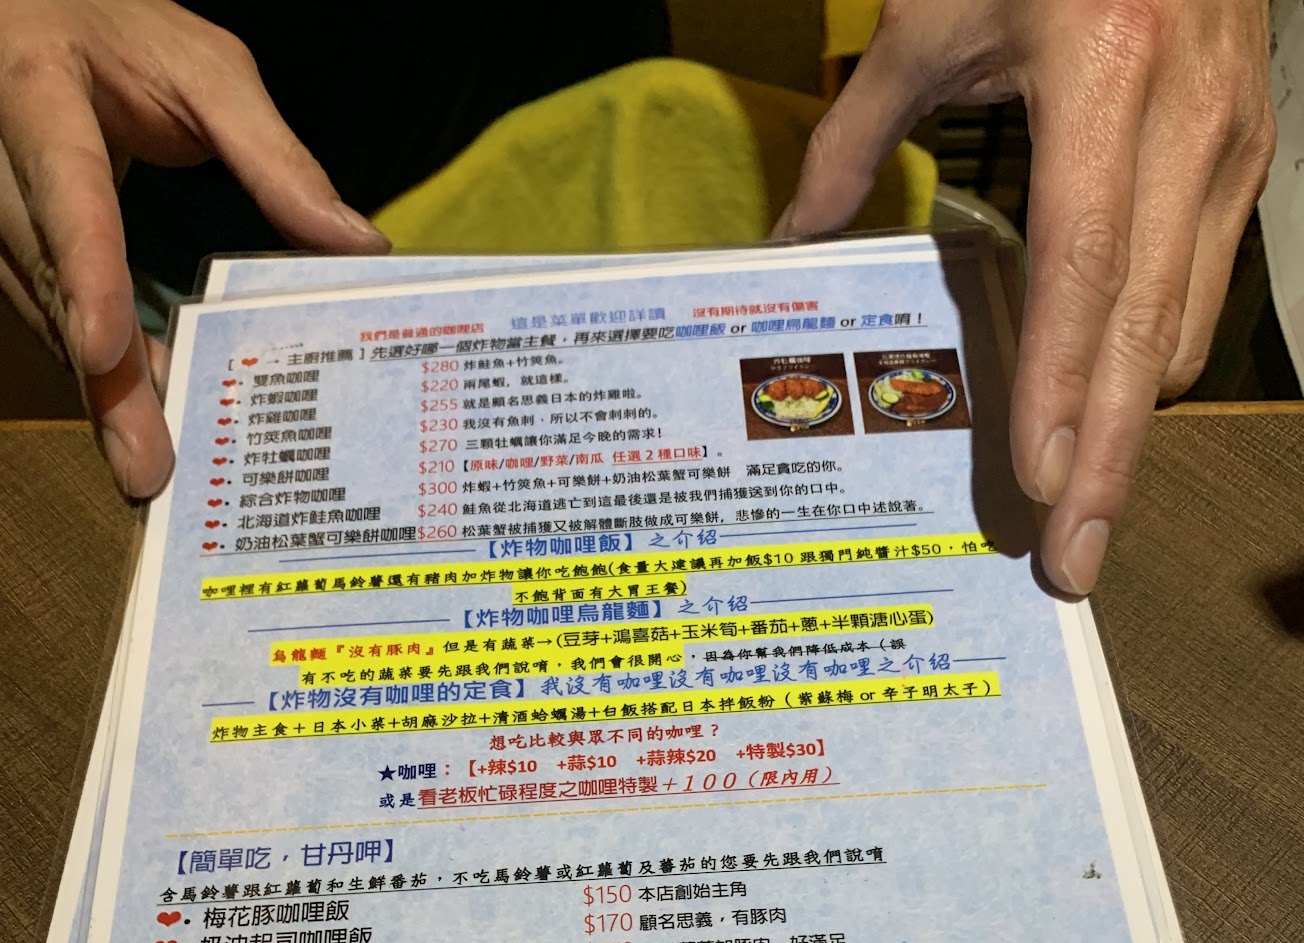 我們是普通的咖哩店 這是菜單歡迎詳讀 沒有期待就沒有傷害
[ ❤ → 主廚推薦 ] 先選好哪一個炸物當主餐，再來選擇要吃咖哩飯 or 咖哩烏龍麵 or 定食唷！
❤. 雙魚咖哩 $280 炸鮭魚+竹筴魚。
❤. 炸蝦咖哩 $220 兩尾蝦，就這樣。
❤. 炸雞咖哩 $255 就是顧名思義日本的炸雞啦。
❤. 竹筴魚咖哩 $230 我沒有魚刺，所以不會刺刺的。
❤. 炸牡蠣咖哩 $270 三顆牡蠣讓你滿足今晚的需求！
❤. 可樂餅咖哩 $210【原味/咖哩/野菜/南瓜 任選 2 種口味】。
❤. 綜合炸物咖哩 $300 炸蝦+竹筴魚+可樂餅+奶油松葉蟹可樂餅 滿足貪吃的你。
❤. 北海道炸鮭魚咖哩 $240 鮭魚從北海道逃亡到這最後還是被我們捕獲送到你的口中。
❤. 奶油松葉蟹可樂餅咖哩 $260 松葉蟹被捕獲又被解體斷肢做成可樂餅，悲慘的一生在你口中述說著。
【炸物咖哩飯】之介紹
咖哩裡有紅蘿蔔馬鈴薯還有豬肉加炸物讓你吃飽飽(食量大建議再加飯$10 跟獨門純醬汁$50，怕吃
不飽背面有大胃王餐)
【炸物咖哩烏龍麵】之介紹
烏龍麵『沒有豚肉』但是有蔬菜→(豆芽+鴻喜菇+玉米筍+番茄+蔥+半顆溏心蛋)
有不吃的蔬菜要先跟我們說唷，我們會很開心，因為你幫我們降低成本（誤
【炸物沒有咖哩的定食】我沒有咖哩沒有咖哩沒有咖哩之介紹
炸物主食+日本小菜+胡麻沙拉+清酒蛤蠣湯+白飯搭配日本拌飯粉（紫蘇梅 or 辛子明太子）
想吃比較與眾不同的咖哩？
★咖哩：【+辣$10 +蒜$10 +蒜辣$20 +特製$30】
或是看老板忙碌程度之咖哩特製＋１００（限內用）
【簡單吃，甘丹呷】
含馬鈴薯跟紅蘿蔔和生鮮番茄，不吃馬鈴薯或紅蘿蔔及蕃茄的您要先跟我們說唷
❤. 梅花豚咖哩飯 $150 本店創始主角
奶油起司咖哩飯 $170 顧名思義，有豚肉
好滿足